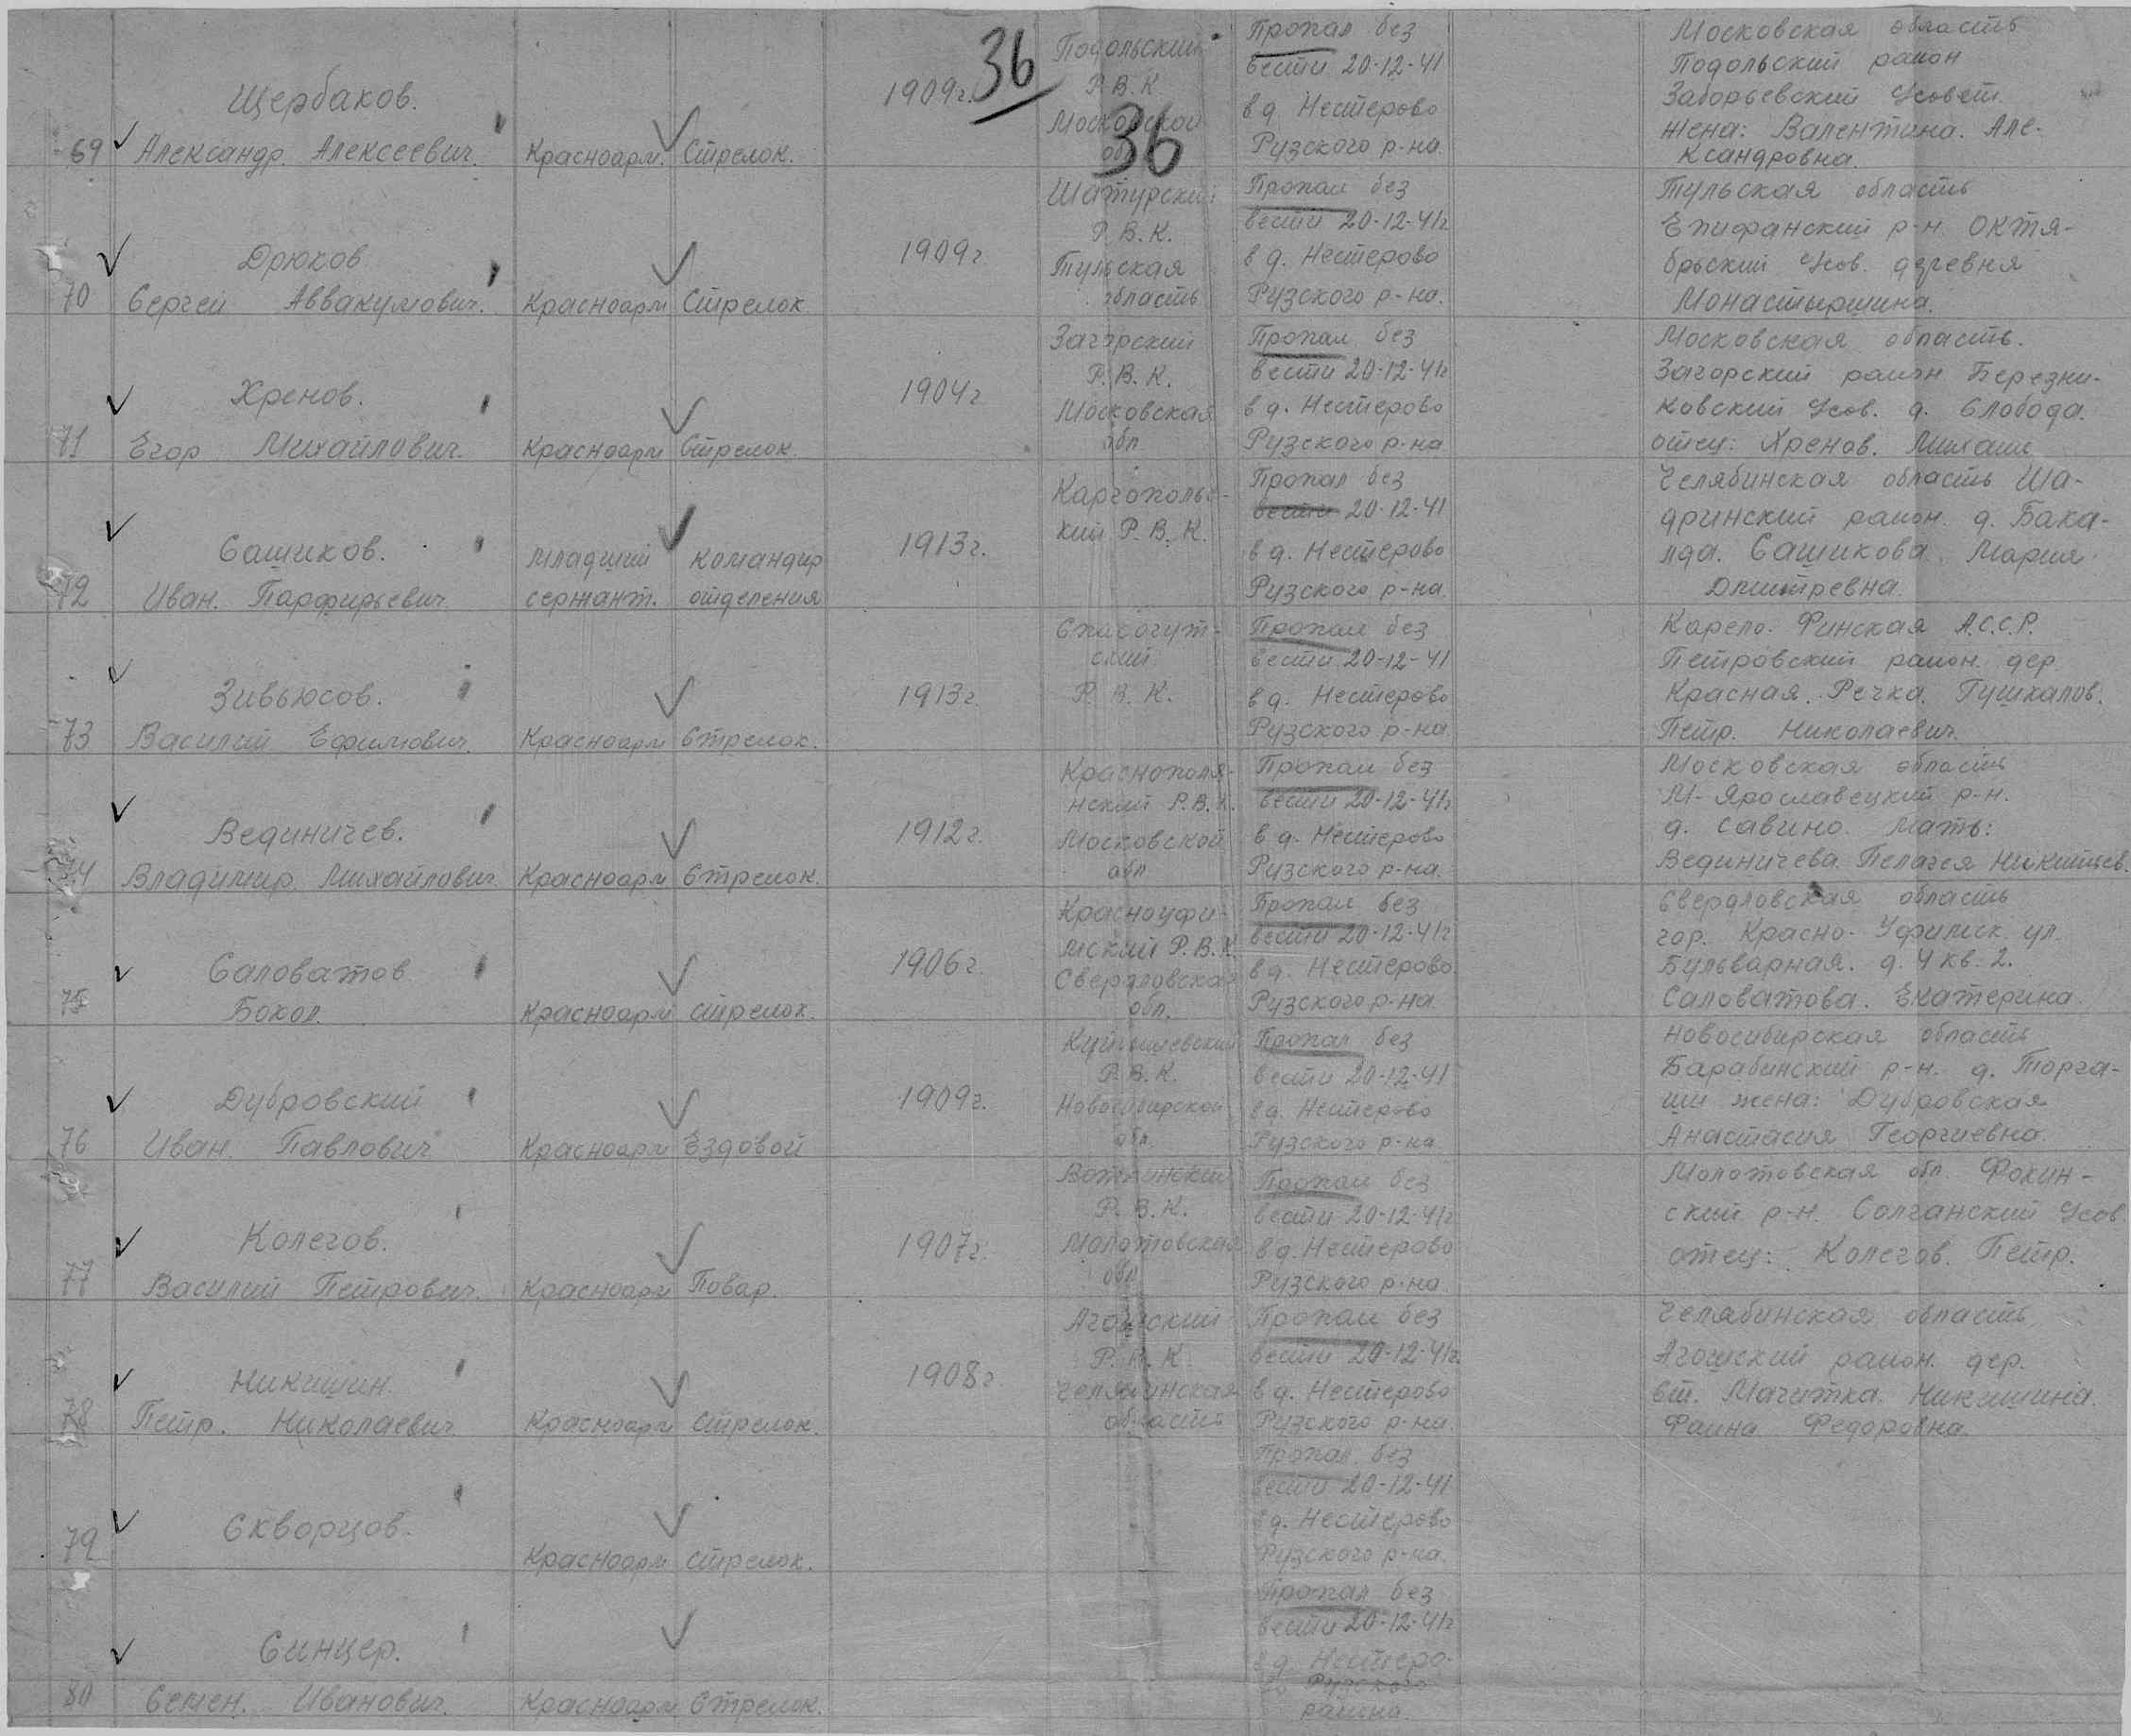 36
36
69
Щербаков.
Александр. Алексеевич.
Красноарм.
Стрелок.
1909г.
Подольский
Р.В.К.
Московской
обл
Пропал без
вести 20-12-41
в д. Нестерово
Рузского р-на.
Московская область
Подольский район
Заборьевский Усовет.
жена: Валентина. Але-
ксандровна.
70
Дрюков
Сергей Аввакумович.
Красноарм
Стрелок
1909г
Шатурский
Р.В.К.
Тульская
область
Пропал без
вести 20-12-41г
в д. Нестерово
Рузского р-на.
Тульская область
Епифанский р-н. Октя-
брьский Усов. деревня
Монастыршина.
71
Хренов.
Егор Михайлович.
Красноарм
Стрелок.
1904г
Загорский
Р.В.К.
Московская
обл
Пропал без
вести 20-12-41г
в д. Нестерово
Рузского р-на
Московская область.
Загорский район Березни-
ковский Усов. д. Слобода.
отец: Хренов. Михаил
72
Сашиков.
Иван. Парфирьевич
Младший
сержант.
Командир
отделения
1913г.
Каргопольс-
кий Р.В.К.
Пропал без
вести 20-12-41
в д. Нестерово
Рузского р-на.
Челябинская область Ша-
дринский район. д. Бака-
лда. Сашикова. Мария.
Дмитревна.
73
Зивьюсов.
Василий Ефимович.
Красноарм
Стрелок.
1913г.
Спасогут-
ский
Р.В.К.
Пропал без
вести 20-12-41
в д. Нестерово
Рузского р-на
Карело. Финская А.С.С.Р.
Петровский район. дер.
Красная. Речка. Гушкалов.
Петр. Николаевич.
74
Вединичев.
Владимир. Михайлович
Красноарм
Стрелок.
1912г.
Краснополя-
нский Р.В.К.
Московской
обл
Пропал без
вести 20-12-41г
в д. Нестерово
Рузского р-на.
Московская область
М-Ярославецкий р-н.
д. Савино. Мать:
Вединичева Пелагея Никитиев.
75
Саловатов
Бокол.
Красноарм
стрелок.
1906г.
Красноуфи-
мский Р.В.К.
Свердловская
обл.
Пропал без
вести 20-12-41г
в д. Нестерово
Рузского р-на
Свердловская область
гор. Красно-Уфимск ул.
Бульварная. д. 4 кв. 2.
Саловатова. Екатерина.
76
Дубровский
Иван. Павлович
Красноарм
Ездовой
1909г.
Куйбышевский
Р.В.К.
Новосибирской
обл.
Пропал без
вести 20-12-41
в д. Нестерово
Рузского р-на
Новосибирская область
Барабинский р-н. д. Торга-
ши жена: Дубровская
Анастасия Георгиевна.
77
Колегов.
Василий Петрович.
Красноарм
Повар.
1907г.
Воткинский
Р.В.К.
Молотовская
обл
Пропал без
вести 20-12-41г
в д. Нестерово
Рузского р-на
Молотовская обл. Фокин-
ский р-н. Солганский Усов
отец: Колегов. Петр.
78
Никишин.
Петр. Николаевич
Красноарм
стрелок.
1908г
Агошский
Р.В.К
Челябинская
область
Пропал без
вести 20-12-41г.
в д. Нестерово
Рузского р-на.
Челябинская область
Агошский район. дер.
ст. Магитка. Никишина.
Фаина Федоровна.
79
Скворцов.
Красноарм
стрелок.
Пропал без
вести 20-12-41
в д. Нестерово
Рузского р-на.
80
Синцер.
Семен. Иванович.
Красноарм
Стрелок.
Пропал без
вести 20-12-41г
в д. Нестеро-
во Рузского
района.